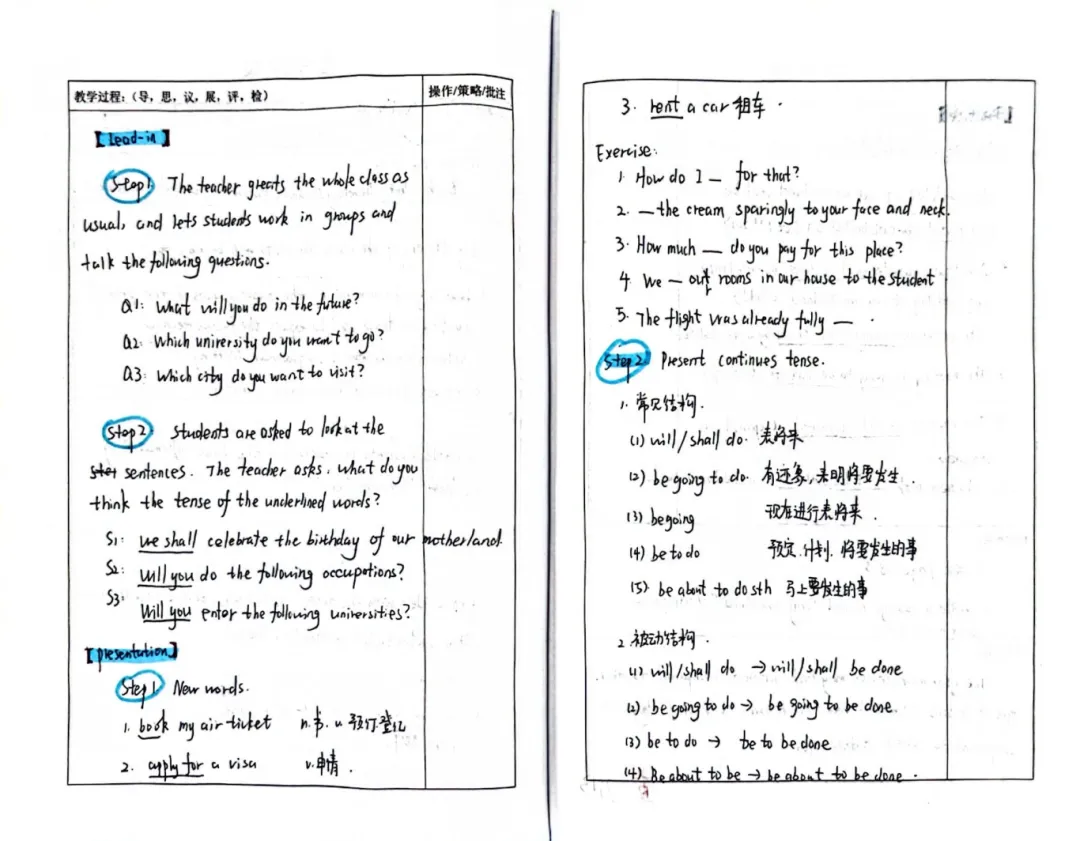 教学过程：（导，思，议，展，评，检）
操作/策略/批注
【Lead-in】
Step1 The teacher greats the whole class as
usual, and lets students work in groups and
talk the following questions.
Q1: What will you do in the future?
Q2: Which university do you want to go?
Q3: Which city do you want to visit?
Step2 Students are asked to look at the
sentences. The teacher asks, what do you
think the tense of the underlined words?
S1: we shall celebrate the birthday of our motherland
S2: Will you do the following occupations?
S3: Will you enter the following universities?
【presentation】
Step1 New words.
1. book my air ticket n.书. v. 预订 登记
2. apply for a visa v.申请.
3. rent a car 租车.
Exercise:
1. How do I — for that?
2. — the cream sparingly to your face and neck.
3. How much — do you pay for this place?
4. We — out rooms in our house to the student
5. The flight was already fully — .
Step2 Present continues tense.
1. 常见结构.
(1) will/shall do. 表将来
(2) be going to do. 有迹象,表明将要发生.
(3) begoing 现在进行表将来.
(4) be to do 预定.计划.将要发生的事
(5) be about to do sth 马上要发生的事
2. 被动结构.
(1) will/shall do → will/shall be done
(2) be going to do → be going to be done.
(3) be to do → be to be done
(4) Be about to be → be about to be done.